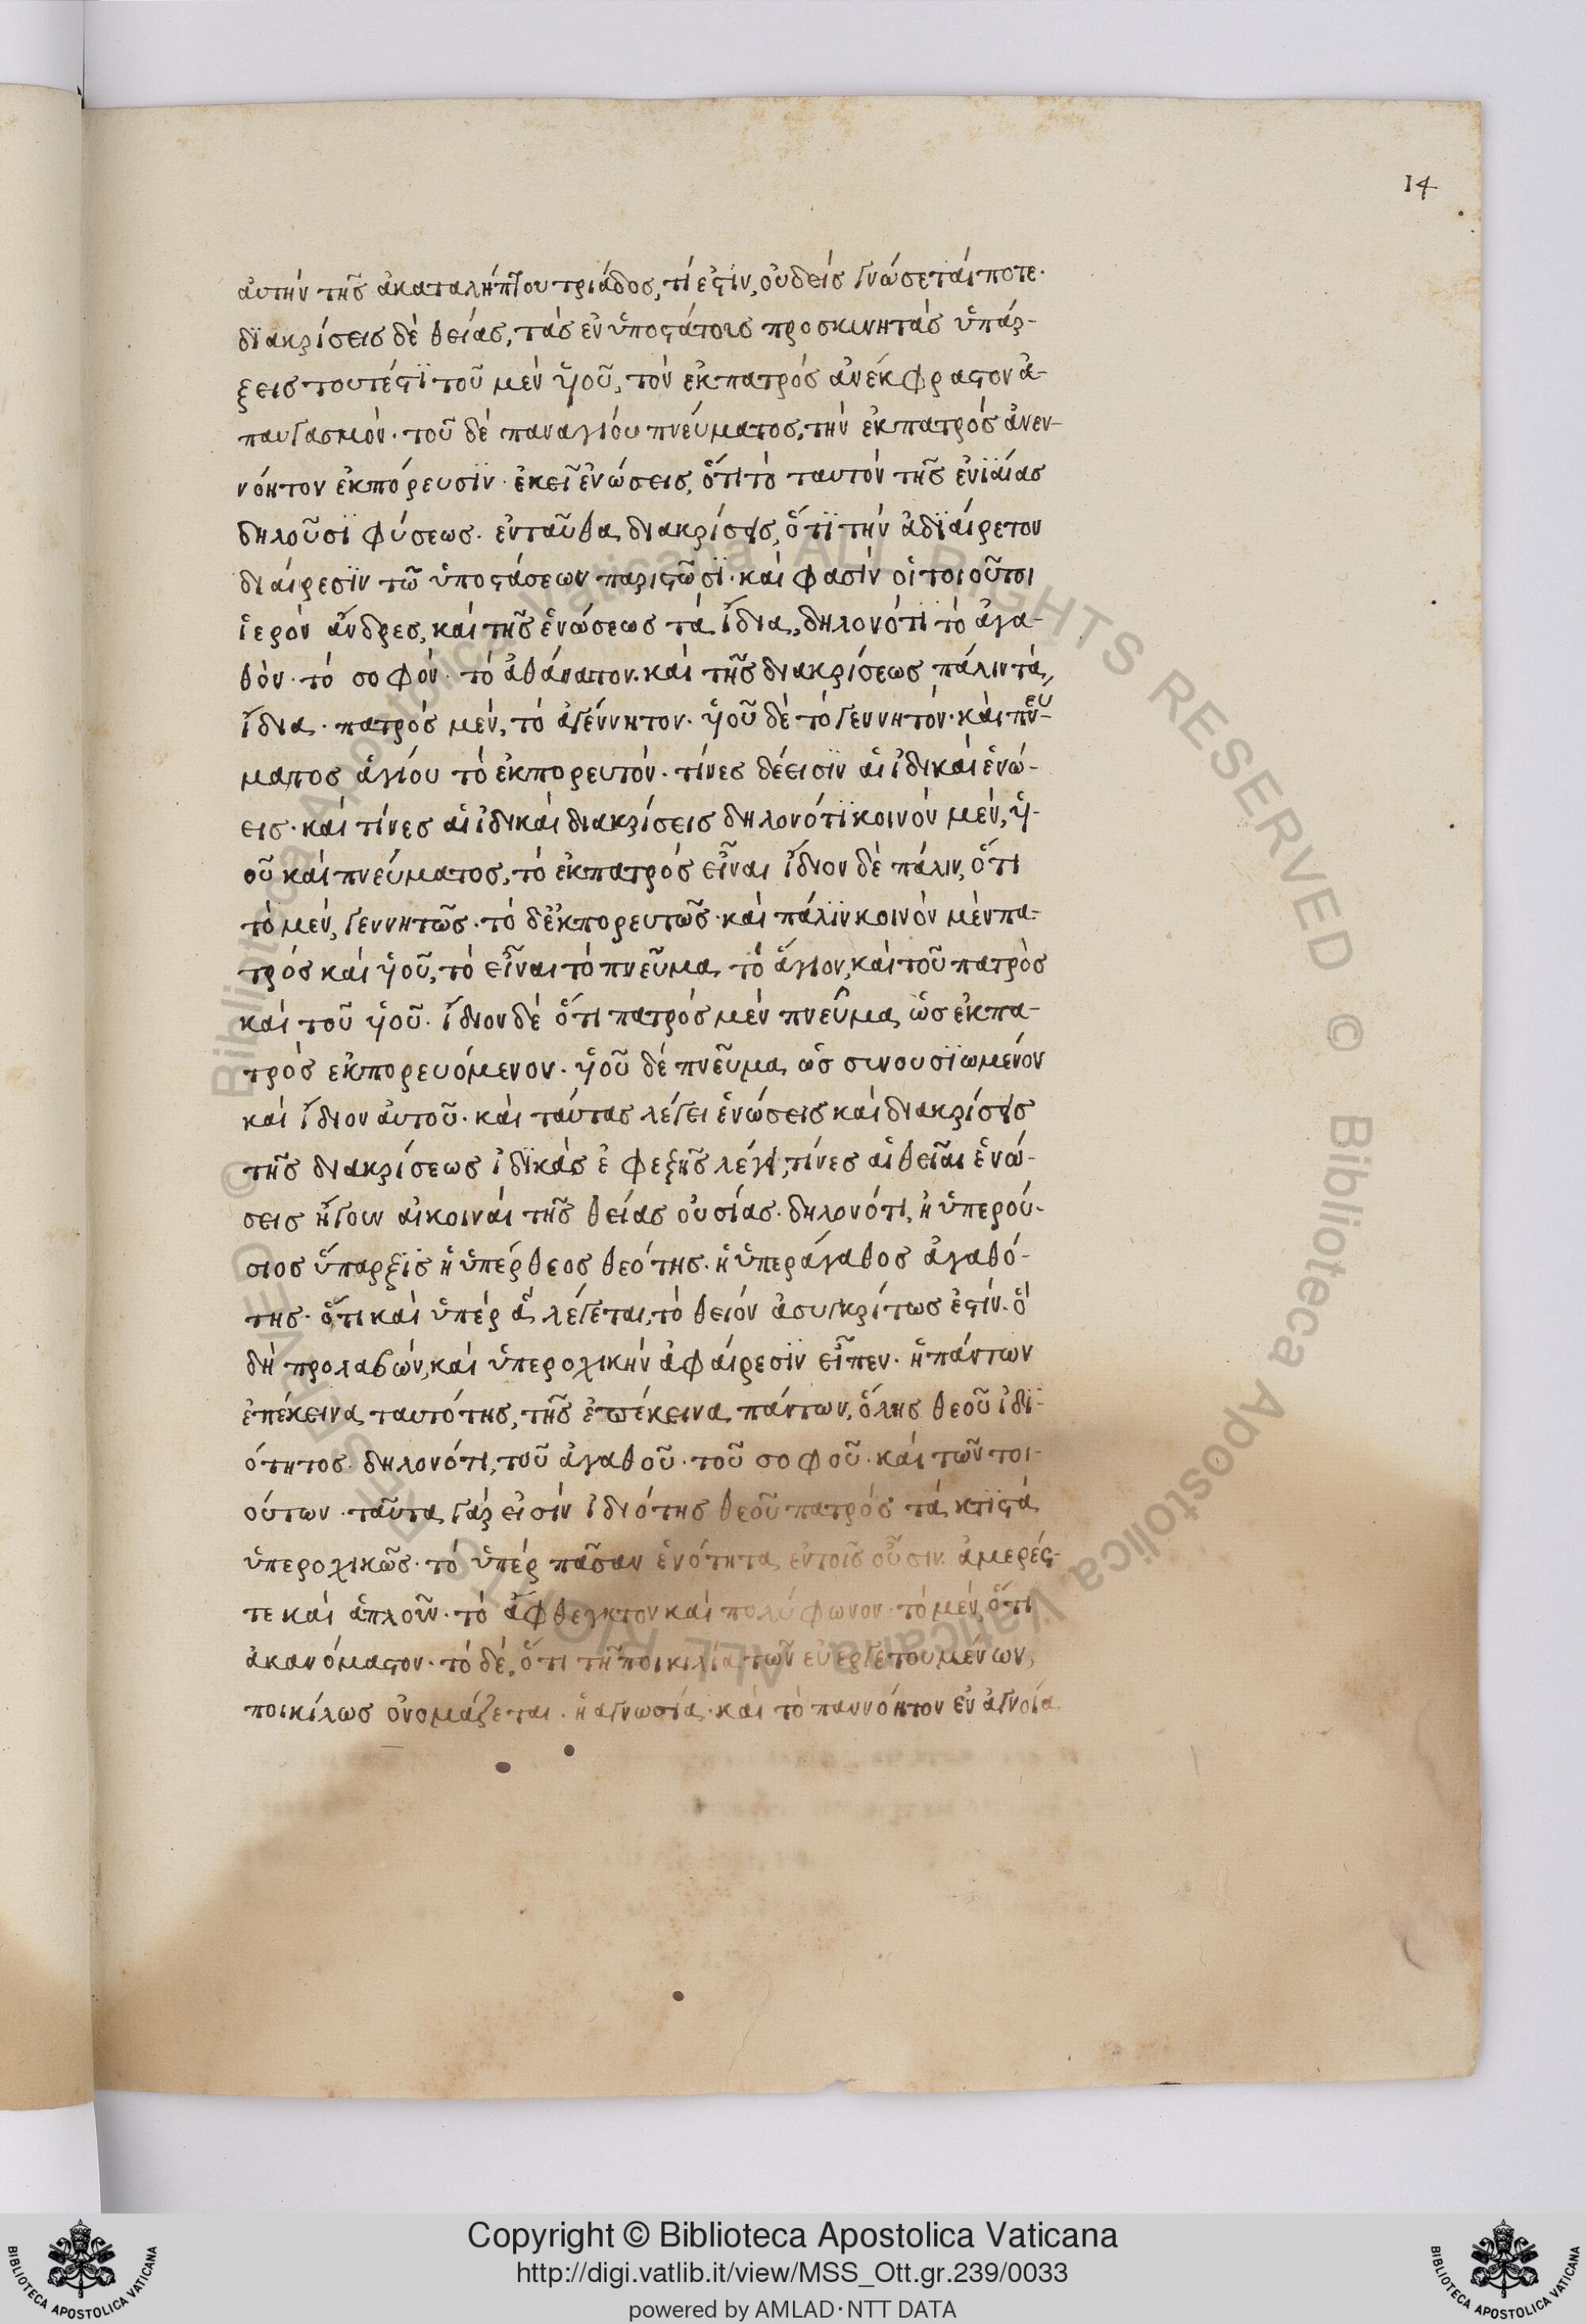 14
ἀυτὴν τῆς ἀκαταλήπτου τριάδος, τί ἐστὶν, οὐδεὶς γνώσεταί ποτε·
διακρίσεις δὲ θείας, τὰς ἐν ὑποστάτοις προσκινητὰς ὑπάρ-
ξεις τουτέστι τοῦ μὲν ὑιοῦ, τὸν ἐκπατρὸς ἀνέκφραστον ἀ-
παυγασμὸν· τοῦ δὲ παναγίου πνεύματος, τὴν ἐκπατρὸς ἀνεν-
νόητον ἐκπόρευσϊν· ἐκεῖ ἑνώσεις, ὅτι τὸ ταυτὸν τῆς ἑνϊαίας
δηλοῦσϊ φύσεως· ἐνταῦθα διακρίσεις, ὅτϊ τὴν ἀδϊαίρετον
διαίρεσϊν τῶ ὑποστάσεων παριστῶσϊ· καὶ φασὶν οἱ τοιοῦτοι
ἱερὸν ἄνδρες, καὶ τῆς ἑνώσεως τὰ ἴδια, δηλονότϊ τὸ ἀγα-
θὸν· τὸ σοφὸν· τὸ ἀθάνατον· καὶ τῆς διακρίσεως πάλιν τὰ
ἴδια· πατρὸς μὲν, τὸ ἀγέννητον· ὑιοῦ δὲ τὸ γεννητόν· καὶ πνεύ-
ματος ἁγίου τὸ ἐκπορευτόν· τίνες δέ εισϊν ἁι ἰδικαὶ ἑνώ-
εις· καὶ τίνες αἱ ἰδικαὶ διακρίσεις δηλονότϊ κοινὸν μὲν, ὑι-
οῦ καὶ πνεύματος, τὸ ἐκπατρὸς εἶναι ἴδιον δὲ πάλιν, ὅτι
τὸ μὲν, γεννητῶς· τὸ δ' ἐκπορευτῶς· καὶ πάλϊν κοινὸν μὲν πα-
τρὸς καὶ ὑιοῦ, τὸ εἶναι τὸ πνεῦμα τὸ ἅγιον, καὶ τοῦ πατρὸς
καὶ τοῦ ὑιοῦ· ἴδιον δὲ ὅτι πατρὸς μὲν πνεῦμα ὡς ἐκπα-
τρὸς ἐκπορευόμενον· ὑιοῦ δὲ πνεῦμα ὡς συνουσϊωμένον
καὶ ἴδιον ἀυτοῦ· καὶ ταύτας λέγει ἑνώσεις καὶ διακρίσεις
τῆς διακρίσεως ἰδϊκάς ἐφεξῆς λέγει, τίνες αἱ θεῖαι ἑνώ-
σεις ἤγουν αἱ κοιναὶ τῆς θείας οὐσίας· δηλονότι, ἡ ὑπερού-
σιος ὕπαρξϊς ἡ ὑπέρθεος θεότης· ἡ ὑπεράγαθος ἀγαθό-
της· ὅτι καὶ ὑπὲρ ἃ λέγεται, τὸ θεῖόν ἀσυγκρίτως ἐστίν· ὁ
δὴ προλαβὼν, καὶ ὑπεροχικὴν ἀφαίρεσϊν εἶπεν· ἡ πάντων
ἐπέκεινα ταυτότης, τῆς ἐπέκεινα πάντων, ὅλης θεοῦ ἰδϊ-
ότητος· δηλονότι, τοῦ ἀγαθοῦ· τοῦ σοφοῦ· καὶ τῶν τοι-
ούτων· ταῦτα γὰρ εἰσὶν ἰδιότης θεοῦ πατρὸς τὰ κτϊστὰ
ὑπεροχικῶς· τὸ ὑπὲρ πᾶσαν ἑνότητα ἐντοῖς οὖσιν· ἀμερές-
τε καὶ ἁπλοῦν· τὸ ἄφθεγκτον καὶ πολύφωνον· τὸ μὲν, ὅτι
ἀκανόμαστον· τὸ δὲ, ὅτι τῆ ποικιλία τῶν εὐεργετουμένων,
ποικίλως ὀνομάζεται· ἡ αγνωσία· καὶ τὸ παννόητον ἐν ἀγνοία
Copyright © Biblioteca Apostolica Vaticana
http://digi.vatlib.it/view/MSS_Ott.gr.239/0033
powered by AMLAD·NTT DATA